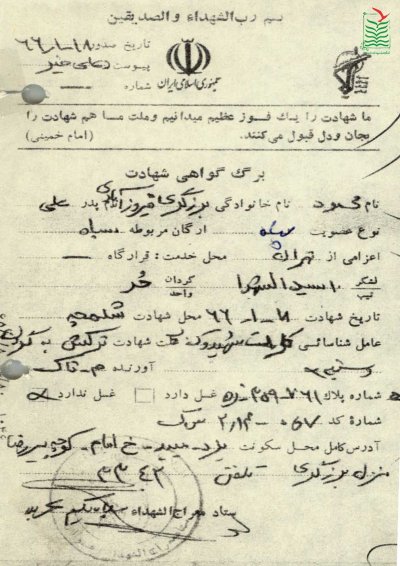 بسم رب الشهداء و الصدیقین
تاریخ صدور ۱۸-۱-۶۶
پیوست
شماره —
جمهوری اسلامی ایران
ما شهادت را یک فوز عظیم میدانیم وملت ما هم شهادت را
بجان ودل قبول میکنند. (امام خمینی)
برگ گواهی شهادت
نام محمود نام خانوادگی برزگری فیروزآبادی نام پدر علی
نوع عضویت ارگان مربوطه سپاه
اعزامی از تهران محل خدمت: قرارگاه —
لشگر تیپ ۱۰ سیدالشهدا گردان واحد حر
تاریخ شهادت ۱۸-۱-۶۶ محل شهادت شلمچه
عامل شناسائی کارت علت شهادت ترکش به
آورنده
شماره پلاک غسل دارد غسل ندارد
شماره کد
آدرس کامل محل سکونت یزد-میبد-خ امام-کوچه
منزل برزگری تلفن ۳۳۴۲
ستاد معراج الشهداء